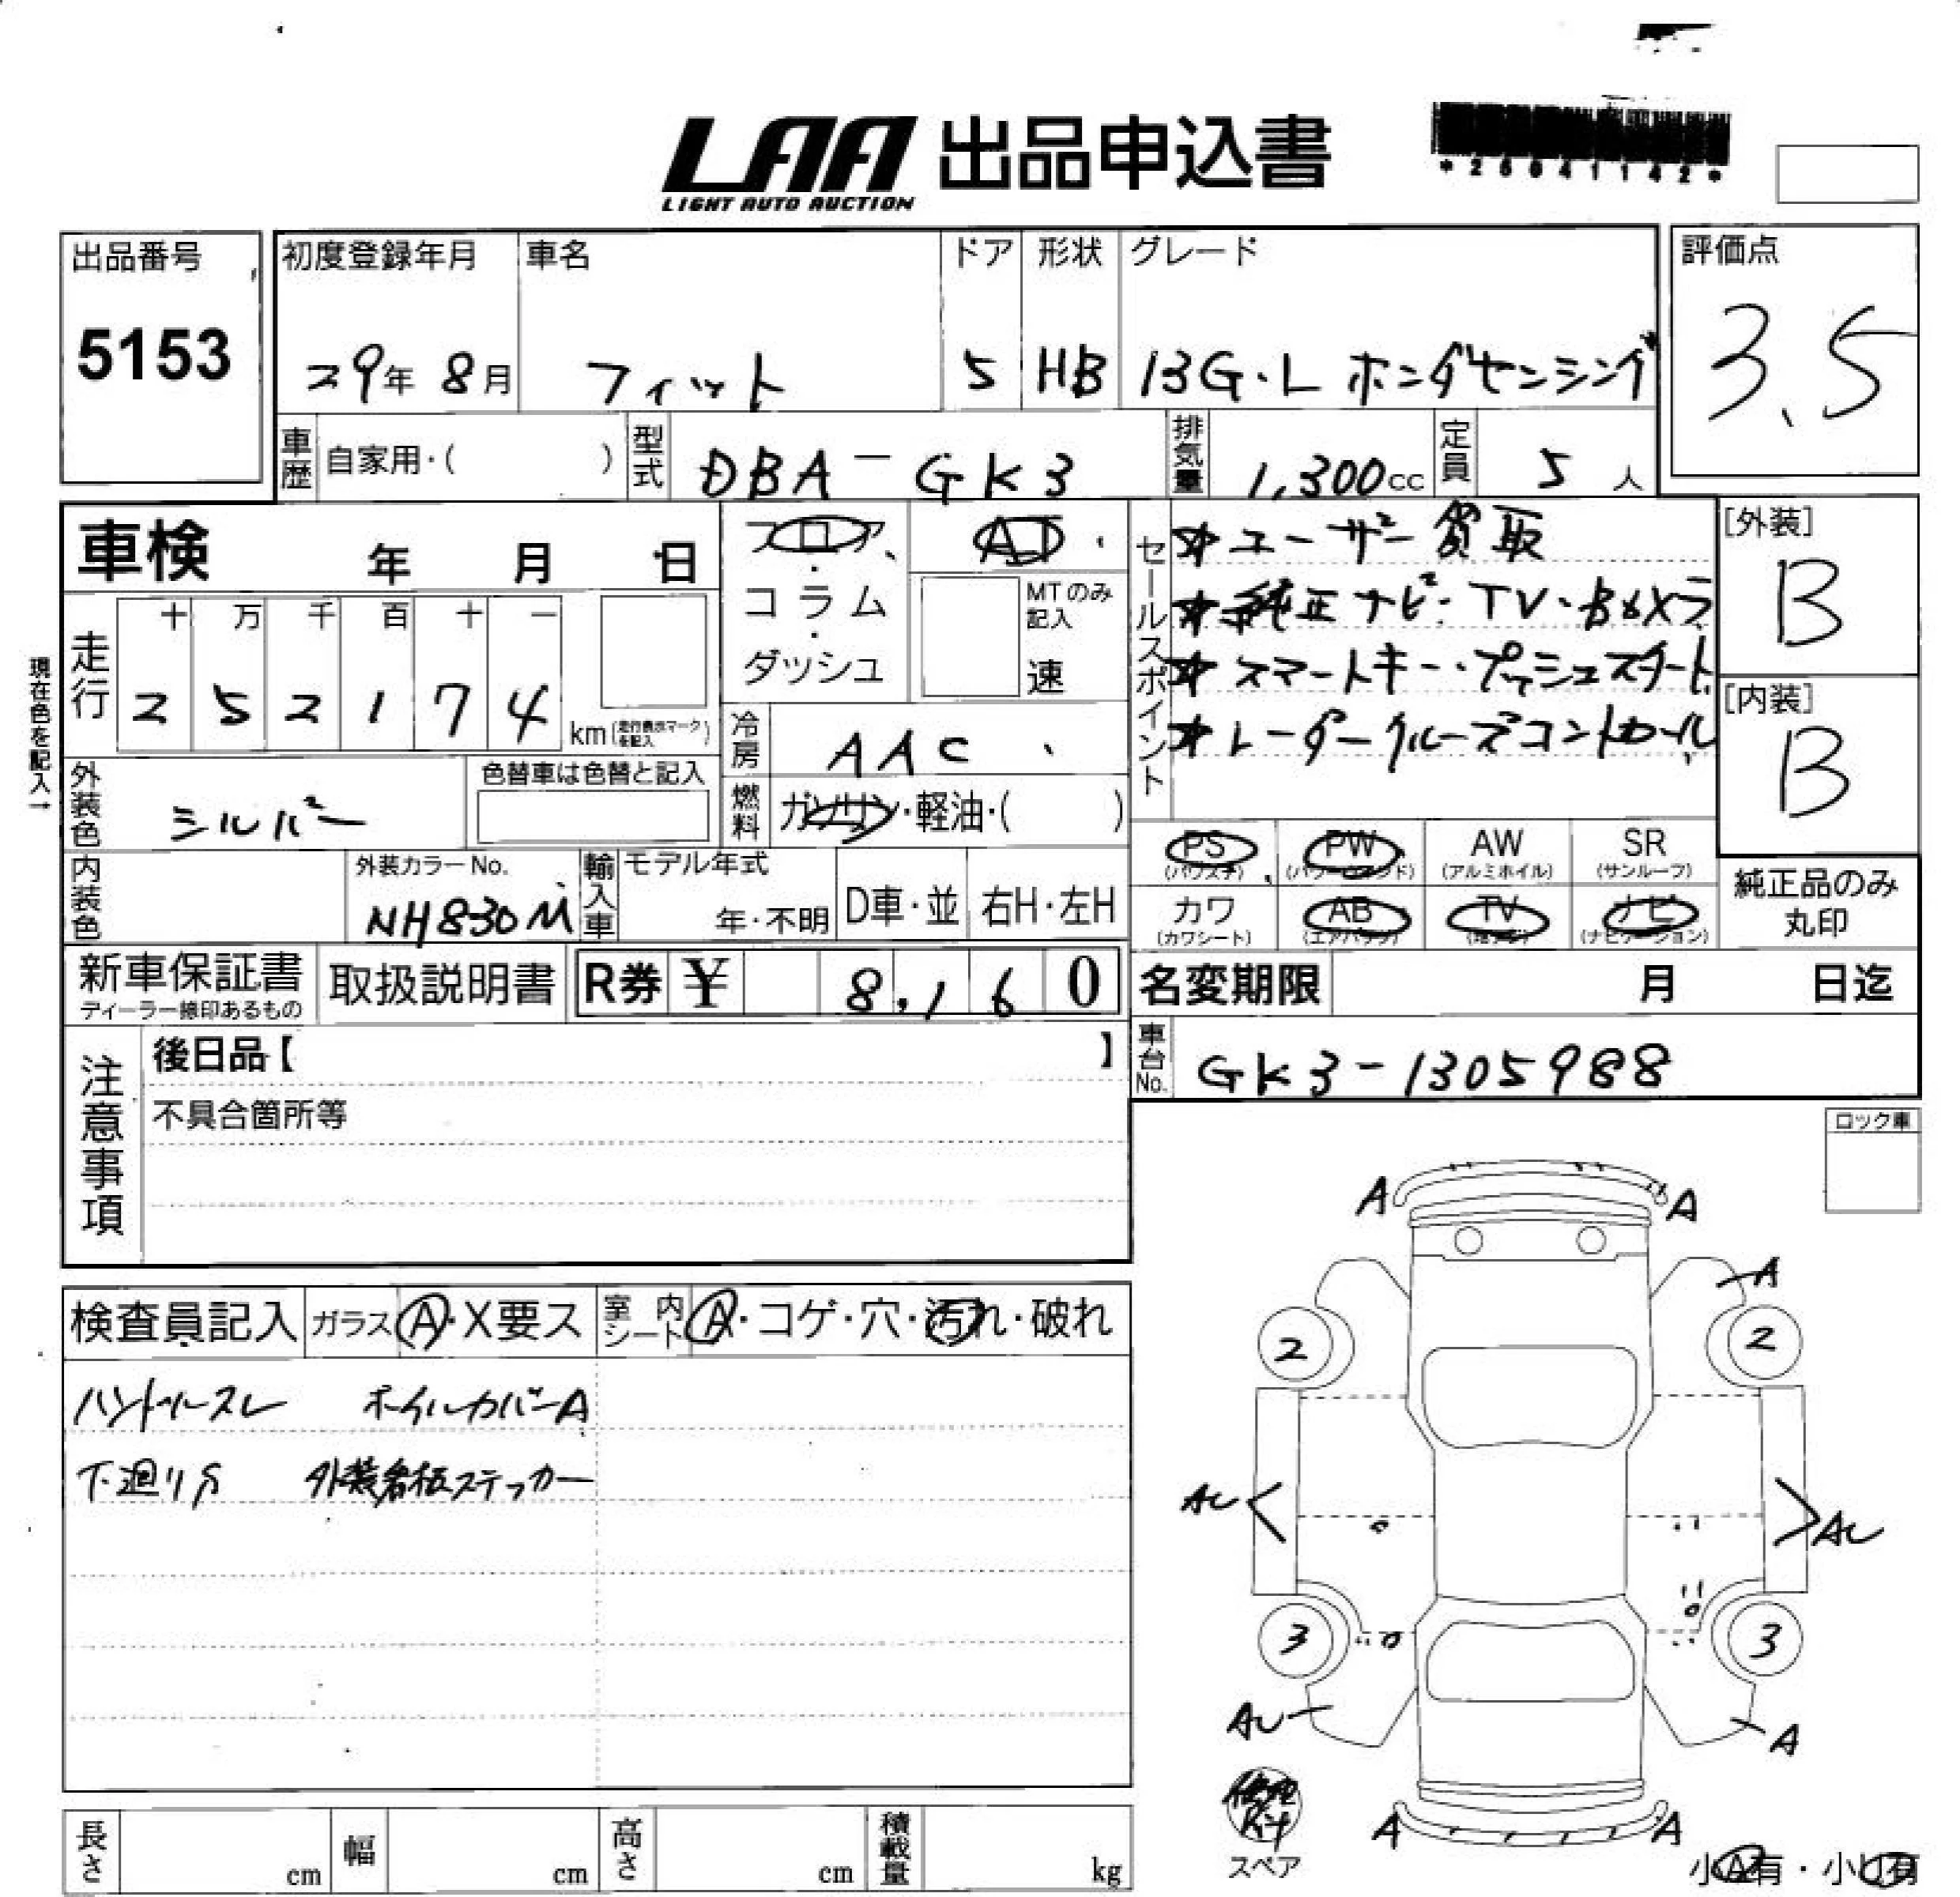 LAA 出品申込書
LIGHT AUTO AUCTION
*26041142*
出品番号
5153
初度登録年月
29年 8月
車名
フィット
ドア
5
形状
HB
グレード
13G・L ホンダセンシング
評価点
3.5
車歴 自家用・( )
型式 DBA-GK3
排気量 1,300cc
定員 5人
車検 年 月 日
フロア
・
コラム
・
ダッシュ
AT
MTのみ記入
速
セールスポイント
☆ユーザー買取
☆純正ナビ・TV・Bカメラ
☆スマートキー・プッシュスタート
☆レーダークルーズコントロール
[外装]
B
[内装]
B
現在色を記入→
走行
十 万 千 百 十 一
2 5 2 1 7 4 km(走行表示マークを記入)
冷房 AAC
燃料 ガソリン・軽油・( )
外装色 シルバー
色替車は色替と記入
内装色
外装カラーNo.
NH830M
輸入車
モデル年式
年・不明
D車・並
右H・左H
PS
(パワステ)
PW
(パワーウインド)
AW
(アルミホイル)
SR
(サンルーフ)
カワ
(カワシート)
AB
(エアバッグ)
TV
(地デジ)
ナビ
(ナビゲーション)
純正品のみ
丸印
新車保証書
ディーラー線印あるもの
取扱説明書
R券 ¥ 8,160
名変期限 月 日迄
車台No. GK3-1305988
注意事項
後日品【 】
不具合箇所等
ロック車
検査員記入
ガラス A・X要ス
室内シート A・コゲ・穴・汚れ・破れ
ハンドルスレ ホイルカバーA
下廻りS 外装看板ステッカー
A A
A
2 2
AU AU
3 3
AU A
A A
スペア
小A有・小U有
長さ cm
幅 cm
高さ cm
積載量 kg